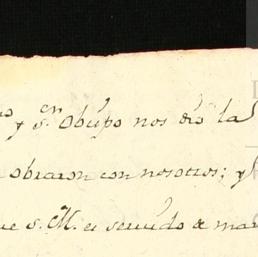 y sᵉⁿ Obispo nos dió la
obraron con nosotros; y
ue S. M. es servido de man